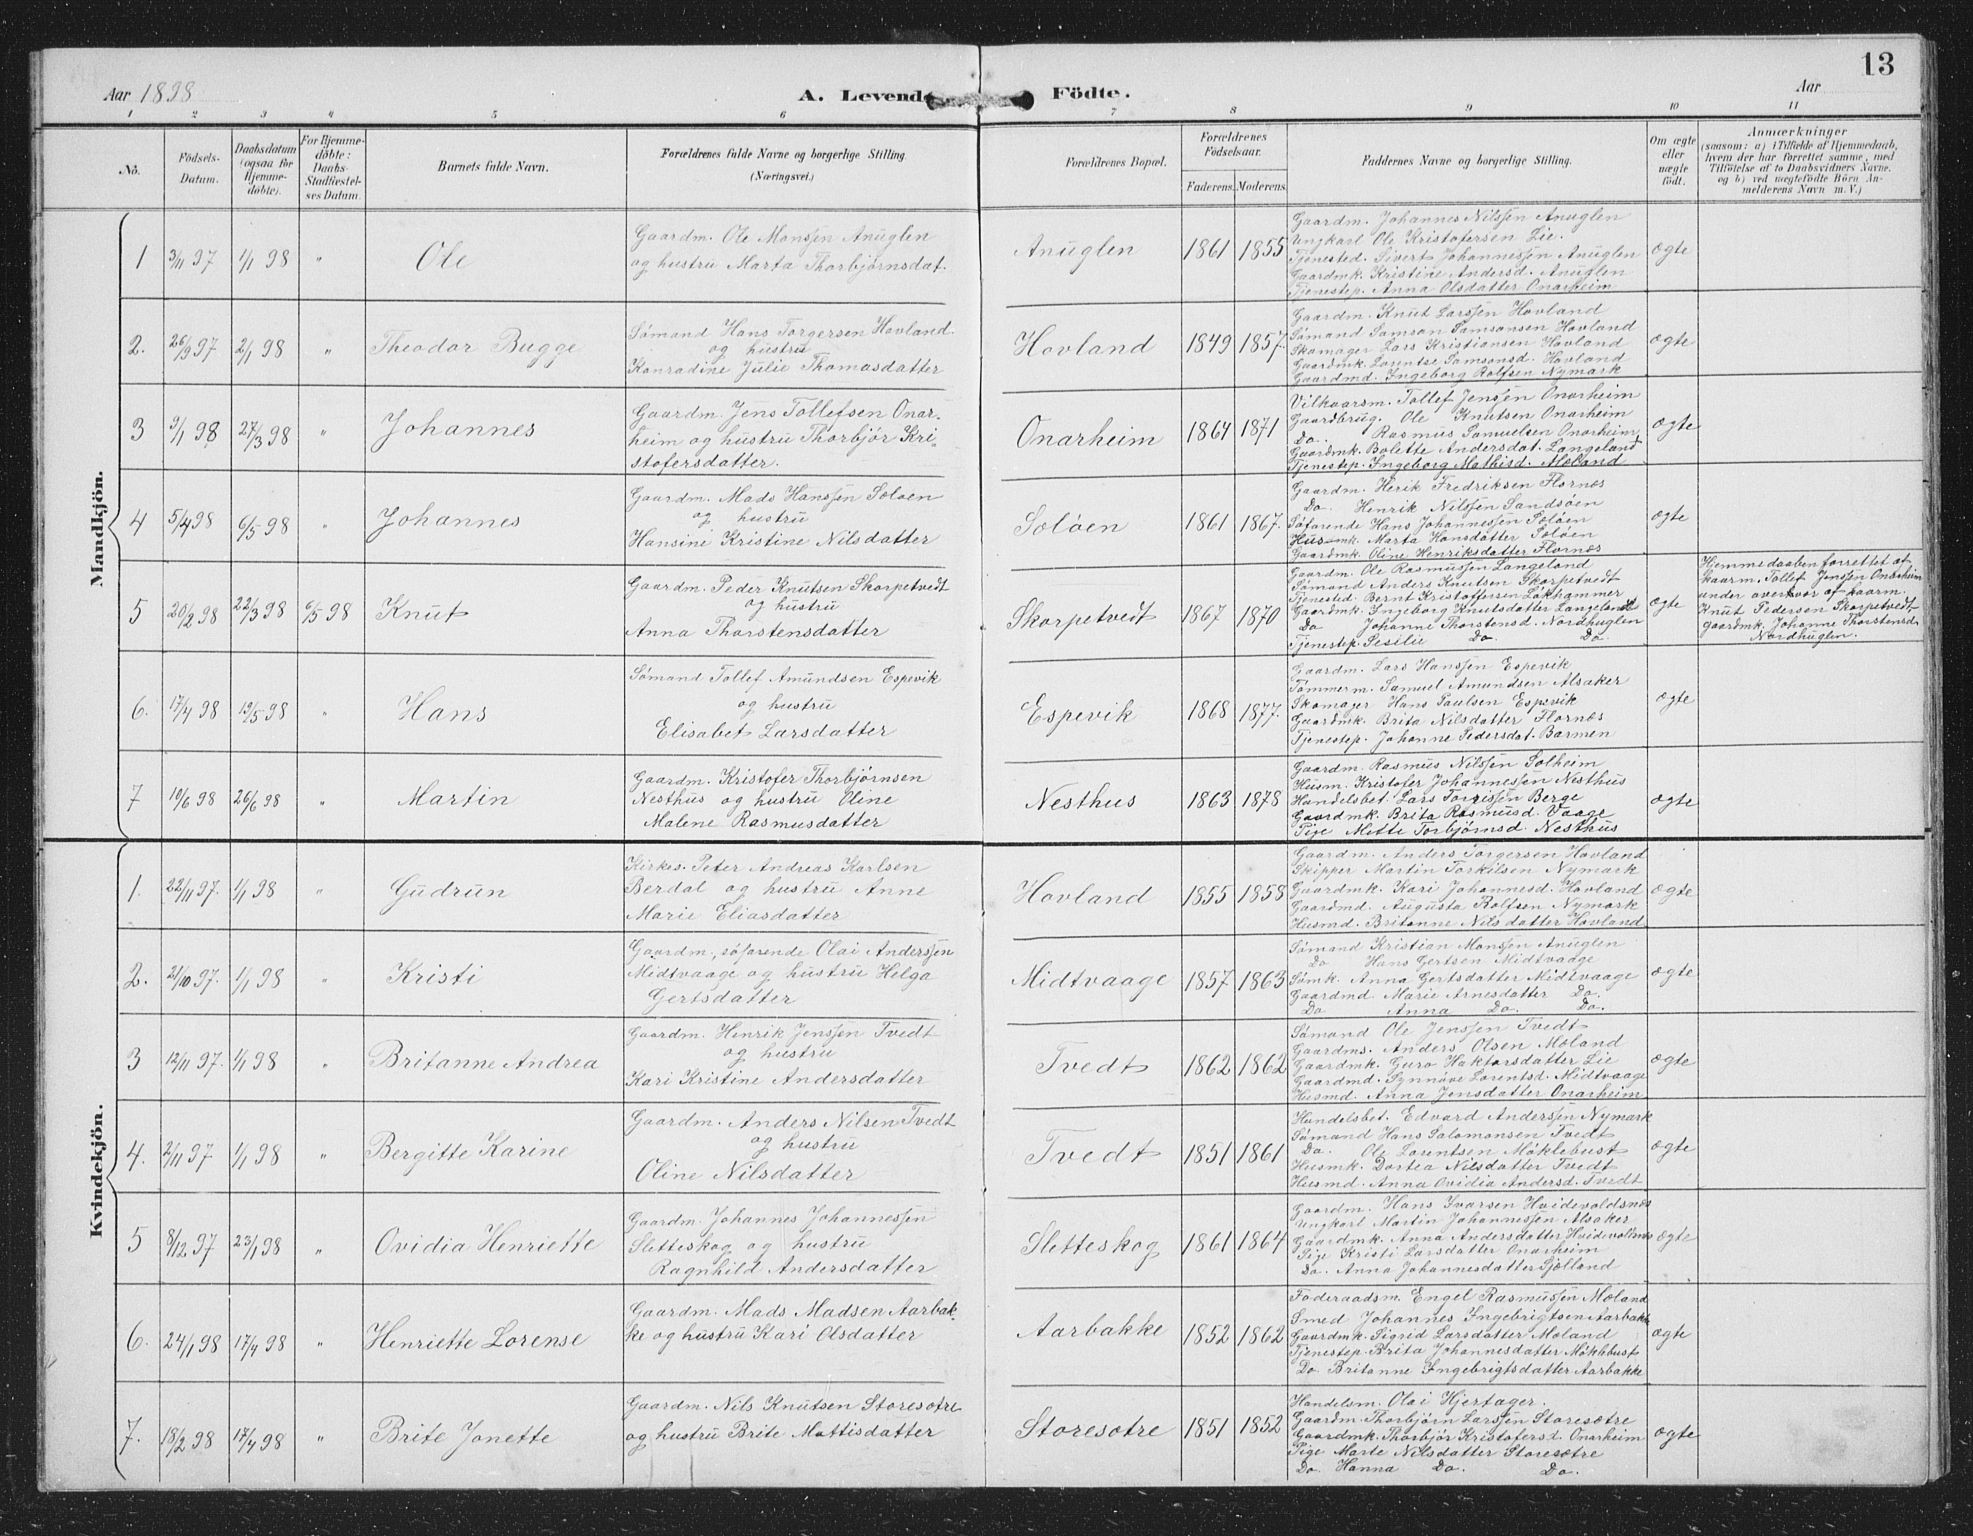 13
Aar 1898
A. Levende Födte.
Aar
1 2 3 4 5 6 7 8 9 10 11
No.
Födsels-
Datum.
Daabsdatum
(ogsaa for
Hjemme-
døbte).
For Hjemme-
døbte:
Daabs-
Stadfæstel-
ses Datum.
Barnets fulde Navn.
Forældrenes fulde Navne og borgerlige Stilling.
(Næringsvei.)
Forældrenes Bopæl.
Forældrenes
Födselsaar.
Faderens. Moderens.
Faddernes Navne og borgerlige Stilling.
Om ægte
eller
uægte
født.
Anmærkninger
(saasom: a) i Tilfælde af Hjemmedaab,
hvem der har forrettet samme, med
Tilföielse af to Daabsvidners Navne,
og b) ved uægtefödte Börn An-
melderens Navn m. V.)
Mandkjön.
1 3/11 97 1/1 98 " Ole
Gaardm. Ole Monssen Anuglen
og hustru Marta Thorbjørnsdat.
Anuglen 1861 1855
Gaardm. Johannes Nilssen Anuglen
Ungkarl Ole Kristofersen Lie.
Tjenested. Sivert Johannessen Anuglen
Gaardmk. Kristine Andersd. Anuglen
Tjenestep. Anna Olsdatter Onarheim
ægte
2. 26/9 97 2/1 98 " Theodor Bugge
Sømand Hans Torgersen Hovland
og hustru
Konradine Julie Thomasdatter
Hovland 1849 1857.
Gaardm. Knut Larssen Hovland
Sømand Samson Samsonsen Hovland
Skomager Lars Kristiansen Hovland
Gaardmk. Lorentse Samsonsd. Hovland
Gaardmd. Ingeborg Rolfsen Nymark
ægte
3 9/1 98 27/3 98 " Johannes
Gaardm. Jens Tollefsen Onar-
heim og hustru Thorbjør Kri-
stofersdatter.
Onarheim 1864 1871
Vilkaarsm. Tollef Jenssen Onarheim
Gaardbrug. Ole Knutsen Onarheim
Do. Rasmus Samuelsen Onarheim
Gaardmk. Bolette Andersdat. Langeland
Tjenestep. Ingeborg Mathisd. Moland
ægte
4 5/4 98 6/5 98 " Johannes
Gaardm. Mads Hanssen Soløen
og hustru
Hansine Kristine Nilsdatter
Soløen 1861 1867.
Gaardm. Herik Fredriksen Flornæs
Do. Henrik Nilssen Sandsøen
Søfarende Hans Johannessen Soløen
Husmk. Marta Hansdatter Soløen
Gaardmk. Oline Henriksdatter Flornæs
ægte
5 20/2 98 22/3 98 6/5 98 Knut
Gaardm. Peder Knutsen Skorpetvedt
og hustru
Anna Thorstensdatter
Skorpetvedt 1867 1870
Gaardm. Ole Rasmussen Langeland
Sømand Anders Knutsen Skorpetvedt
Tjenested. Bernt Kristoffersen Løkhammer
Gaardmk. Ingeborg Knutsdatter Langeland
Do Johanne Thorstensd. Nordhuglen
Tjenestep. Sesilie Do. Do.
ægte
Hjemmedaaben forrettet af
kaarm. Tollef Jenssen Onarheim
under overvær af kaarm.
Knut Pedersen Skorpetvedt
gaardmk. Johanne Thorstensd.
Nordhuglen.
6. 17/4 98 19/5 98 " Hans
Sømand Tollef Amundsen Espevik
og hustru
Elisabet Larsdatter
Espevik 1868 1877.
Gaardm. Lars Hanssen Espevik
Tømmerm. Samuel Amundsen Alsaker
Skomager Hans Paulsen Espevik
Gaardmk. Brita Nilsdatter Flornæs
Tjenestep. Johanne Pedersdat. Barmen
ægte
7 10/6 98 26/6 98 " Martin
Gaardm. Kristofer Thorbjørnsen
Nesthus og hustru Oline
Malene Rasmusdatter
Nesthus 1863 1878
Gaardm. Rasmus Nilssen Solheim
Husm. Kristofer Johannessen Nesthus
Handelsbet. Lars Torrissen Berge
Gaardmk. Brita Rasmusd. Vaage
Pige Mette Torbjørnsd. Nesthus
ægte
Kvindekjön.
1. 22/11 97. 1/1 98 " Gudrun
Kirkes. Peter Andreas Karlsen
Berdal og hustru Anne
Marie Eliasdatter
Hovland 1855 1858
Gaardm. Anders Torgersen Hovland
Skipper Martin Torkilsen Nymark
Gaardmk. Kari Johannesd. Hovland
Gaardmd. Augusta Rolfsen Nymark
Husmd. Britanne Nilsdatter Hovland
ægte
2. 21/10 97. 1/1 98 " Kristi
Gaardm., søfarende Olai Anderssen
Midtvaage og hustru Helga
Gertsdatter
Midtvaage 1857 1863
Sømand Kristian Monssen Anuglen
Do Hans Gertsen Midtvaage
Sømk. Anna Gertsdatter Midtvaage
Gaardmd. Marie Arnesdatter Do.
Do Anna Do. Do.
ægte
3 12/11 97. 1/1 98 " Britanne Andrea
Gaardm. Henrik Jenssen Tvedt
og hustru
Kari Kristine Andersdatter
Tvedt 1862 1862
Sømand Ole Jenssen Tvedt
Gaardms. Anders Olsen Moland
Gaardmk. Guro Haktorsdatter Lie
Gaardmd. Synnøve Lorentsd. Midtvaage
Husmd. Anna Jensdatter Onarheim
ægte
4. 2/11 97 1/1 98 " Bergitte Karine
Gaardm. Anders Nilsen Tvedt
og hustru
Oline Nilsdatter
Tvedt 1851 1861
Handelsbet. Edvard Anderssen Nymark
Sømand Hans Salomonsen Tvedt
Do. Ole Lorentsen Møklebust
Husmk. Dortea Nilsdatter Tvedt
Husmd. Anna Ovidia Andersd. Tvedt
ægte
5 8/12 97 23/1 98 " Ovidia Henriette
Gaardm. Johannes Johannessen
Sletteskog og hustru
Ragnhild Andersdatter
Sletteskog 1861 1864
Gaardm. Hans Ivarsen Hvidevoldsnæs
Ungkarl Martin Johannessen Alsaker
Gaardmk. Anna Andersdatter Hvidevoldsnæs
Pige Kristi Larsdatter Onarheim
Do. Anna Johannesdatter Sjølland
ægte
6. 24/1 98 17/4 98 " Henriette Lorense
Gaardm. Mads Madsen Aarbak-
ke og hustru Kari Olsdatter
Aarbakke 1852 1862
Føderaadsm. Engel Rasmussen Moland
Smed Johannes Ingebrigtsen Aarbakke
Gaardmk. Sigrid Larsdatter Moland
Tjenestep. Brita Johannesdatter Møklebust
Do Britanne Ingebrigtsdatter Aarbakke
ægte
7. 18/2 98 17/4 98 " Brite Jonette
Gaardm. Nils Knutsen Storesøtre
og hustru Brite Mattisdatter
Storesøtre 1851 1852
Handelsm. Olai Hjertager.
Gaardm. Thorbjørn Larssen Storesøtre
Gaardmk. Thorbjør Kristofersd. Onarheim
Pige Marte Nilsdatter Storesøtre
Do Hanna Do. Do.
ægte